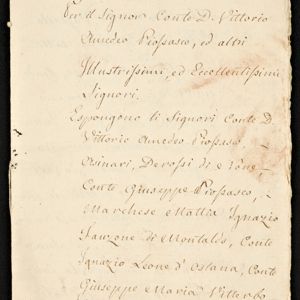 Per il Signor Conte D. Vittorio
Amedeo Piossasco, ed altri
Illustrissimi, ed Eccellentissimi
Signori.
Espongono li Signori Conte D.
Vittorio Amedeo Piossasco,
Asinari, Derossi di, e
Conte Giuseppe Piossasco,
Marchese Mattia Ignazio
di Montaldo, Conte
Ignazio Leone d'Ostana, Conte
Giuseppe Maria Vitterbo